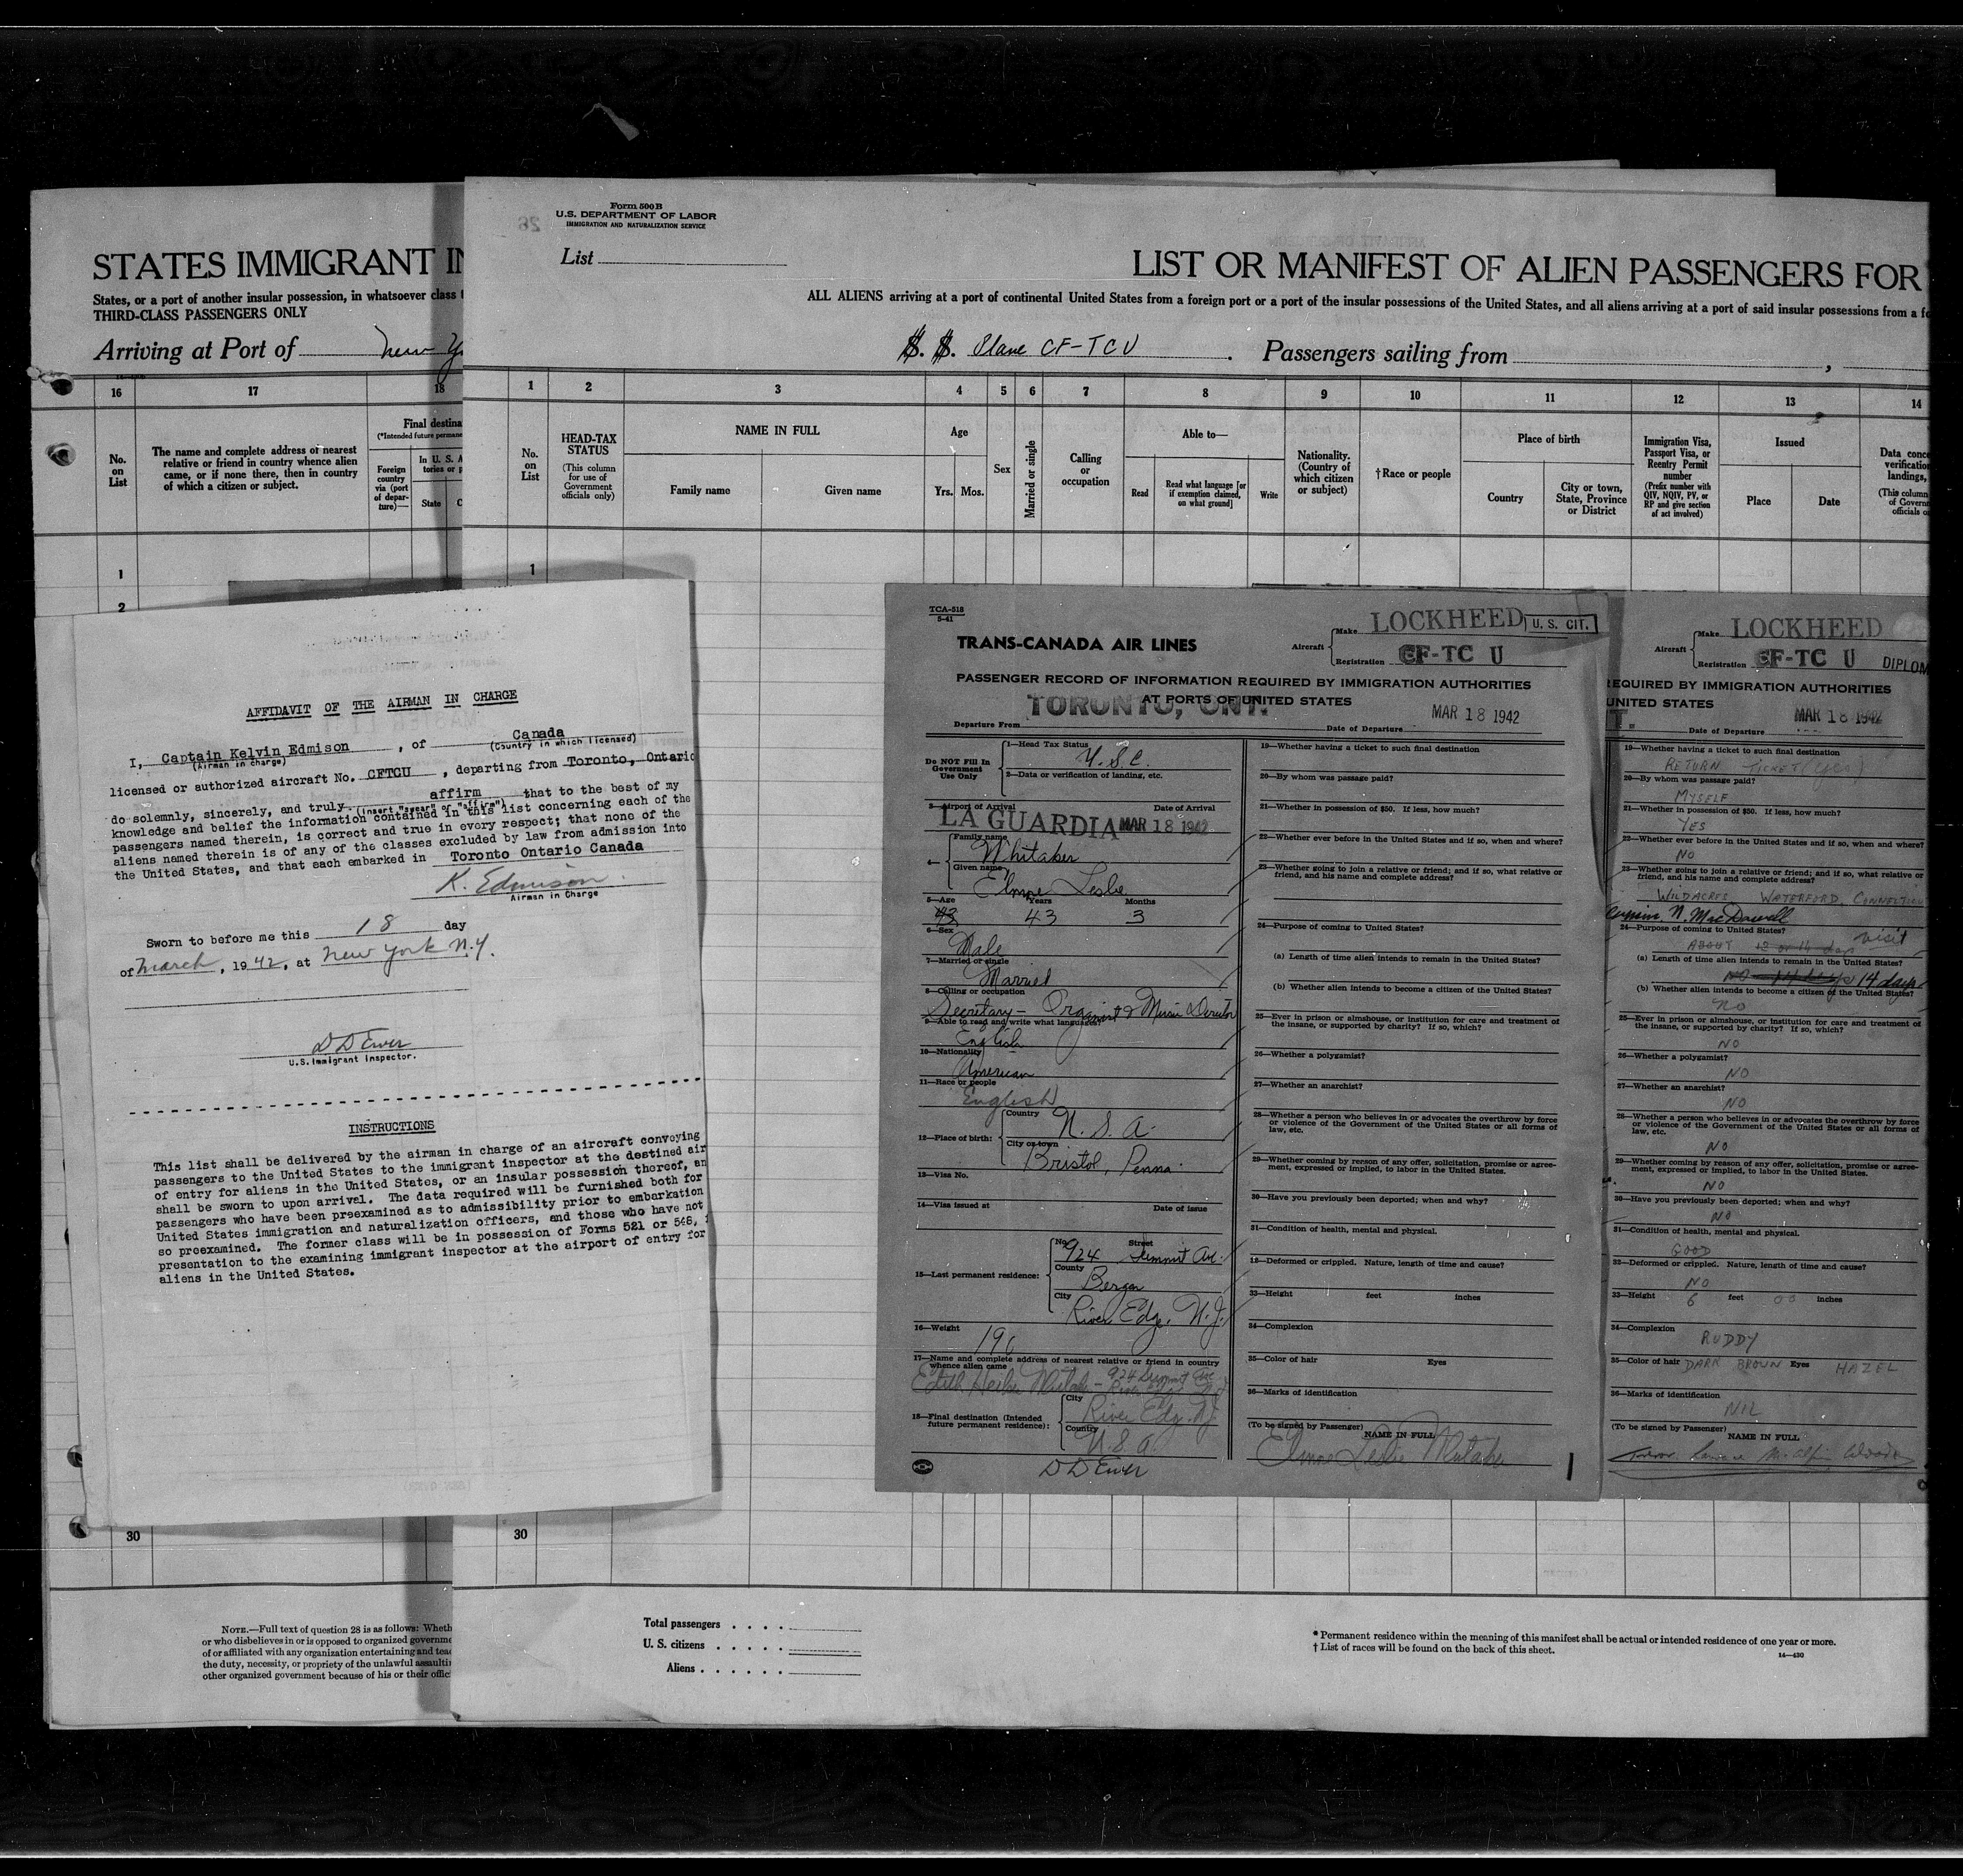 STATES IMMIGRANT IN
States, or a port of another insular possession, in whatsoever class
THIRD-CLASS PASSENGERS ONLY
Arriving at Port of New Y
16
17
18
No. on List
The name and complete address of nearest
relative or friend in country whence alien
came, or if none there, then in country
of which a citizen or subject.
Final destina
(*Intended future permane
Foreign
country
via (port
of depar-
ture)—
In U. S. A
tories or p
State
C
1
2
30
NOTE.—Full text of question 28 is as follows: Wheth
or who disbelieves in or is opposed to organized governme
of or affiliated with any organization entertaining and teac
the duty, necessity, or propriety of the unlawful assaulti
other organized government because of his or their offic
Form 500 B
U.S. DEPARTMENT OF LABOR
IMMIGRATION AND NATURALIZATION SERVICE
26
List
LIST OR MANIFEST OF ALIEN PASSENGERS FOR
ALL ALIENS arriving at a port of continental United States from a foreign port or a port of the insular possessions of the United States, and all aliens arriving at a port of said insular possessions from a fo
S. S. Plane CF-TCU . Passengers sailing from ,
1
2
3
4
5
6
7
8
9
10
11
12
13
14
No.
on
List
HEAD-TAX
STATUS
(This column
for use of
Government
officials only)
NAME IN FULL
Family name
Given name
Age
Yrs. Mos.
Sex
Married or single
Calling
or
occupation
Able to—
Read
Read what language [or
if exemption claimed,
on what ground]
Write
Nationality.
(Country of
which citizen
or subject)
†Race or people
Place of birth
Country
City or town,
State, Province
or District
Immigration Visa,
Passport Visa, or
Reentry Permit
number
(Prefix number with
QIV, NQIV, PV, or
RP and give section
of act involved)
Issued
Place
Date
Data conce
verification
landings,
(This column
of Governm
officials o
1
30
Total passengers
U. S. citizens
Aliens
* Permanent residence within the meaning of this manifest shall be actual or intended residence of one year or more.
† List of races will be found on the back of this sheet.
14—430
AFFIDAVIT OF THE AIRMAN IN CHARGE
I, Captain Kelvin Edmison, of Canada
(Airman in charge) (Country in which licensed)
licensed or authorized aircraft No. CFTCU, departing from Toronto, Ontario
do solemnly, sincerely, and truly affirm that to the best of my
(insert "swear" or "affirm")
knowledge and belief the information contained in this list concerning each of the
passengers named therein, is correct and true in every respect; that none of the
aliens named therein is of any of the classes excluded by law from admission into
the United States, and that each embarked in Toronto Ontario Canada
K. Edmison
Airman in Charge
Sworn to before me this 18 day
of March, 1942, at New York N.Y.
D D Ewer
U.S. Immigrant Inspector.
INSTRUCTIONS
This list shall be delivered by the airman in charge of an aircraft convoying
passengers to the United States to the immigrant inspector at the destined air
of entry for aliens in the United States, or an insular possession thereof, an
shall be sworn to upon arrival. The data required will be furnished both for
passengers who have been preexamined as to admissibility prior to embarkation
United States immigration and naturalization officers, and those who have not
so preexamined. The former class will be in possession of Forms 521 or 548,
presentation to the examining immigrant inspector at the airport of entry for
aliens in the United States.
TCA-518
5-41
TRANS-CANADA AIR LINES
Aircraft
Make LOCKHEED
U. S. CIT.
Registration CF-TC U
PASSENGER RECORD OF INFORMATION REQUIRED BY IMMIGRATION AUTHORITIES
AT PORTS OF UNITED STATES
Departure From TORONTO, ONT.
Date of Departure MAR 18 1942
Do NOT Fill In
Government
Use Only
1—Head Tax Status U.S.C.
2—Data or verification of landing, etc.
3—Airport of Arrival Date of Arrival
LA GUARDIA MAR 18 1942
4—
Family name
Whitaker
Given name
Elmer Leslie
5—Age Years Months
43 43 3
6—Sex
Male
7—Married or single
Married
8—Calling or occupation
Secretary - Organist & Music Director
9—Able to read and write what languages?
English
10—Nationality
American
11—Race or people
English
12—Place of birth:
Country U.S.A.
City or town
Bristol, Penna.
13—Visa No.
14—Visa issued at Date of issue
15—Last permanent residence:
No. 924 Street Summit Av.
County
Bergen
City
River Edge, N.J.
16—Weight
17—Name and complete address of nearest relative or friend in country
whence alien came
924 Summit Ave
18—Final destination (Intended
future permanent residence):
City
River Edge N.J.
Country
U.S.A.
D D Ewer
19—Whether having a ticket to such final destination
20—By whom was passage paid?
21—Whether in possession of $50. If less, how much?
22—Whether ever before in the United States and if so, when and where?
23—Whether going to join a relative or friend; and if so, what relative or
friend, and his name and complete address?
24—Purpose of coming to United States?
(a) Length of time alien intends to remain in the United States?
(b) Whether alien intends to become a citizen of the United States?
25—Ever in prison or almshouse, or institution for care and treatment of
the insane, or supported by charity? If so, which?
26—Whether a polygamist?
27—Whether an anarchist?
28—Whether a person who believes in or advocates the overthrow by force
or violence of the Government of the United States or all forms of
law, etc.
29—Whether coming by reason of any offer, solicitation, promise or agree-
ment, expressed or implied, to labor in the United States.
30—Have you previously been deported; when and why?
31—Condition of health, mental and physical.
32—Deformed or crippled. Nature, length of time and cause?
33—Height feet inches
34—Complexion
35—Color of hair Eyes
36—Marks of identification
(To be signed by Passenger) NAME IN FULL
Elmer Leslie Whitaker
Aircraft
Make LOCKHEED
Registration CF-TC U
DIPLOM
REQUIRED BY IMMIGRATION AUTHORITIES
UNITED STATES
T.
Date of Departure MAR 18 1942
19—Whether having a ticket to such final destination
RETURN TICKET
20—By whom was passage paid?
MYSELF
21—Whether in possession of $50. If less, how much?
YES
22—Whether ever before in the United States and if so, when and where?
NO
23—Whether going to join a relative or friend; and if so, what relative or
friend, and his name and complete address?
WILDACRES WATERFORD, CONNECTICU
Cousin N. MacDowell
24—Purpose of coming to United States? visit
ABOUT 12 or 14 days
(a) Length of time alien intends to remain in the United States?
14 days
(b) Whether alien intends to become a citizen of the United States?
NO
25—Ever in prison or almshouse, or institution for care and treatment of
the insane, or supported by charity? If so, which?
NO
26—Whether a polygamist?
NO
27—Whether an anarchist?
NO
28—Whether a person who believes in or advocates the overthrow by force
or violence of the Government of the United States or all forms of
law, etc.
NO
29—Whether coming by reason of any offer, solicitation, promise or agree-
ment, expressed or implied, to labor in the United States.
NO
30—Have you previously been deported; when and why?
NO
31—Condition of health, mental and physical.
GOOD
32—Deformed or crippled. Nature, length of time and cause?
NO
33—Height 6 feet 00 inches
34—Complexion
RUDDY
35—Color of hair DARK BROWN Eyes HAZEL
36—Marks of identification
NIL
(To be signed by Passenger) NAME IN FULL